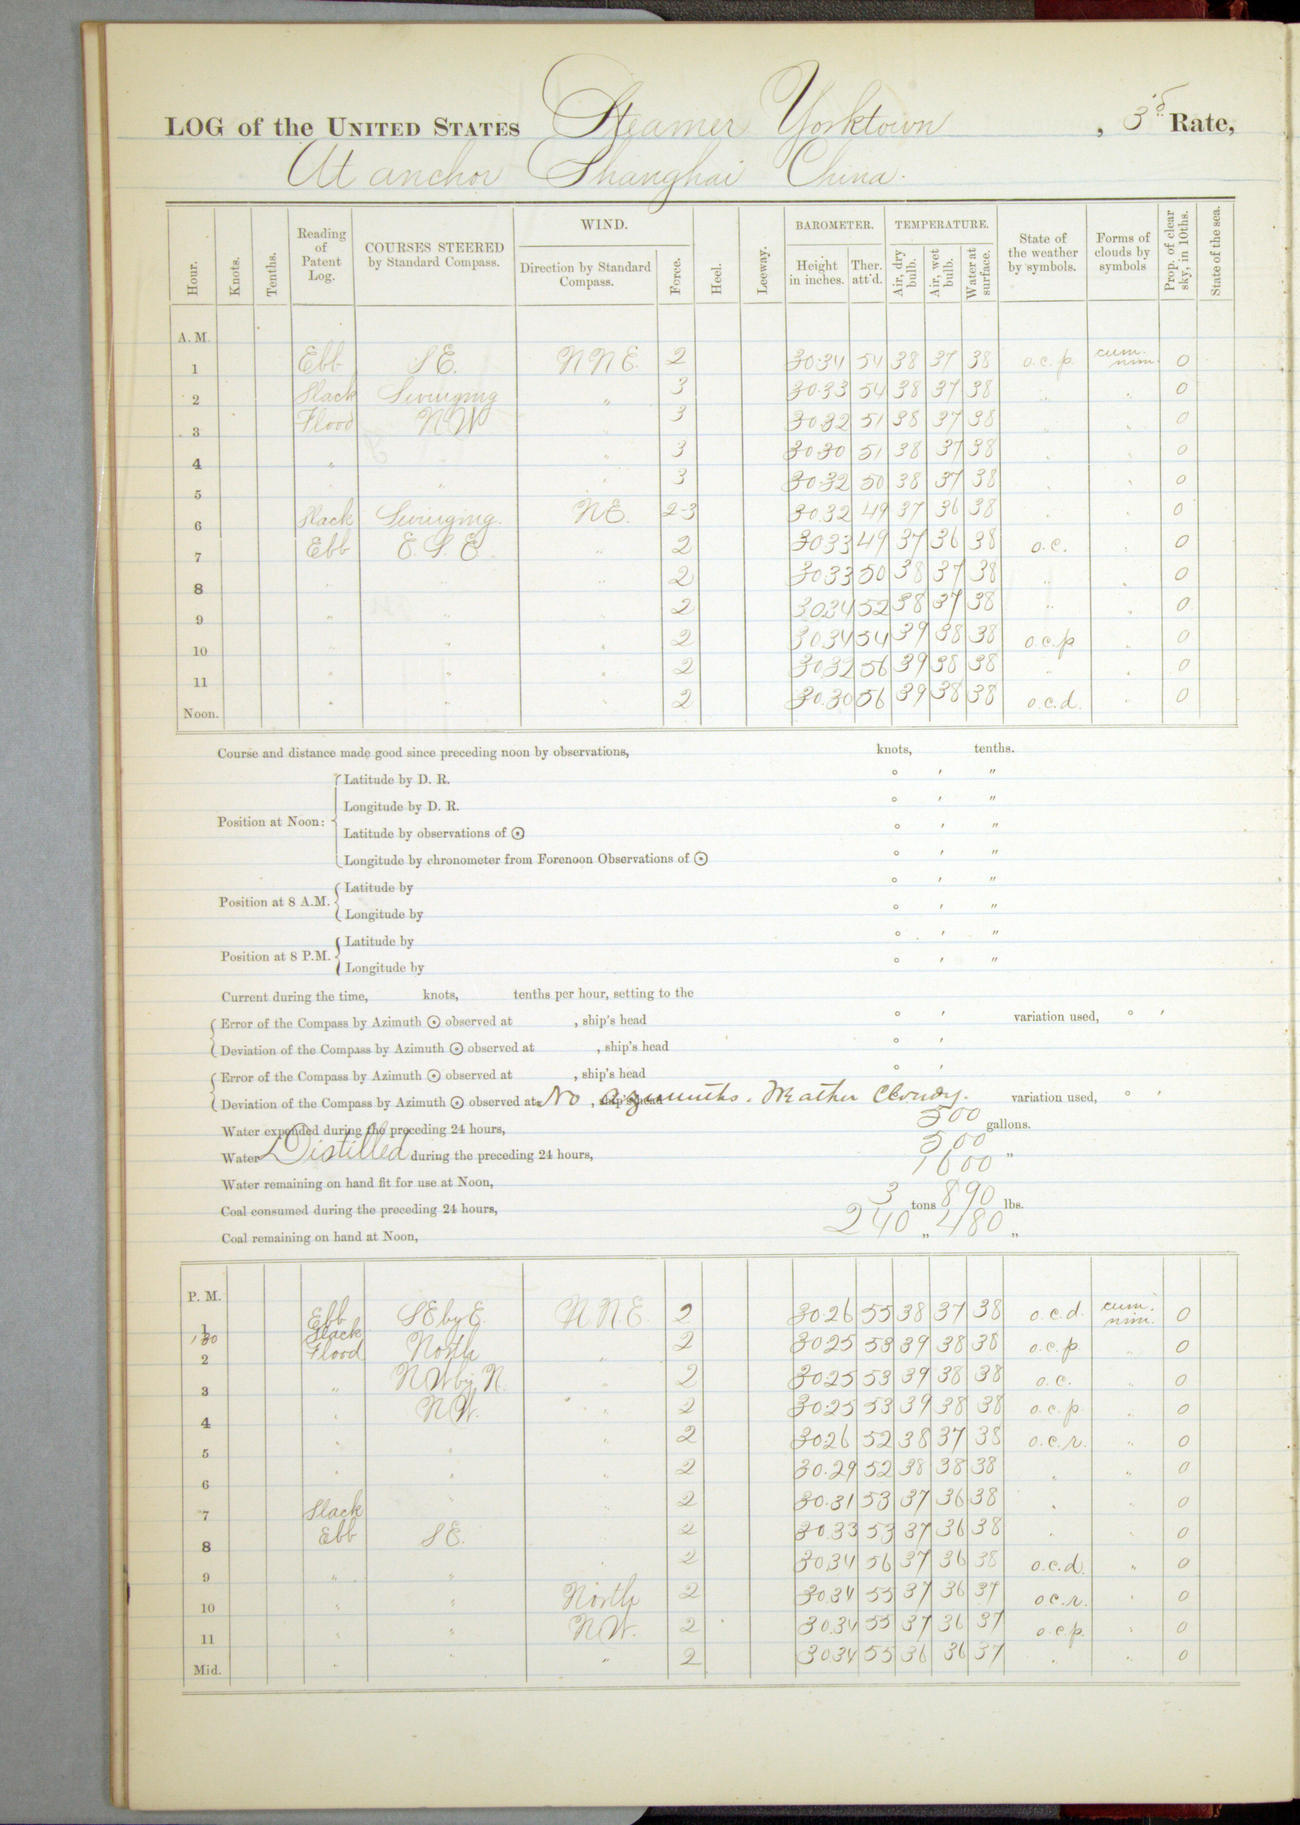 LOG of the UNITED STATES Steamer Yorktown, 3d Rate,
At anchor Shanghai China.
Hour. Knots. Tenths. Reading of Patent Log. COURSES STEERED by Standard Compass. WIND. Direction by Standard Compass. Force. Heel. Leeway. BAROMETER. Height in inches. Ther. att'd. TEMPERATURE. Air, dry bulb. Air, wet bulb. Water at surface. State of the weather by symbols. Forms of clouds by symbols Prop. of clear sky, in 10ths. State of the sea.
A. M.
1 Ebb SE. NNE. 2 30.34 54 38 37 38 o.c.p. cum. nim. 0
2 Slack Swinging " 3 30.33 54 38 37 38 " " 0
3 Flood NW " 3 30.32 51 38 37 38 " " 0
4 " " " 3 30.30 51 38 37 38 " " 0
5 " " " 3 30.32 50 38 37 38 " " 0
6 Slack Swinging. NE. 2-3 30.32 49 37 36 38 " " 0
7 Ebb E.S.E. " 2 30.33 49 37 36 38 o.c. " 0
8 " " " 2 30.33 50 38 37 38 " " 0
9 " " " 2 30.34 52 38 37 38 " " 0
10 " " " 2 30.34 54 39 38 38 o.c.p " 0
11 " " " 2 30.32 56 39 38 38 " " 0
Noon. " " " 2 30.30 56 39 38 38 o.c.d. " 0
Course and distance made good since preceding noon by observations, knots, tenths.
Position at Noon: Latitude by D. R. ° ' "
Longitude by D. R. ° ' "
Latitude by observations of ☉ ° ' "
Longitude by chronometer from Forenoon Observations of ☉ ° ' "
Position at 8 A.M. Latitude by ° ' "
Longitude by ° ' "
Position at 8 P.M. Latitude by ° ' "
Longitude by ° ' "
Current during the time, knots, tenths per hour, setting to the
Error of the Compass by Azimuth ☉ observed at , ship's head ° ' variation used, ° '
Deviation of the Compass by Azimuth ☉ observed at , ship's head ° '
Error of the Compass by Azimuth ☉ observed at , ship's head ° '
Deviation of the Compass by Azimuth ☉ observed at No , ship's head azimuths. Weather Cloudy. variation used, ° '
Water expended during the preceding 24 hours, 500 gallons.
Water Distilled during the preceding 24 hours, 500 "
Water remaining on hand fit for use at Noon, 1600
Coal consumed during the preceding 24 hours, 3 tons 890 lbs.
Coal remaining on hand at Noon, 240 " 480 "
P. M.
1 Ebb SE by E. NNE. 2 30.26 55 38 37 38 o.c.d. cum. nim. 0
1 30 Slack
2 Flood North " 2 30.25 53 39 38 38 o.c.p. " 0
3 " NW by N. " 2 30.25 53 39 38 38 o.c. " 0
4 " NW. " 2 30.25 53 39 38 38 o.c.p. " 0
5 " " " 2 30.26 52 38 37 38 o.c.r. " 0
6 " " " 2 30.29 52 38 38 38 " " 0
7 Slack " " 2 30.31 53 37 36 38 " " 0
8 Ebb SE. " 2 30.33 53 37 36 38 " " 0
9 " " " 2 30.34 56 37 36 38 o.c.d. " 0
10 " " North 2 30.34 55 37 36 37 o.c.r. " 0
11 " " NW. 2 30.34 55 37 36 37 o.c.p. " 0
Mid. " " " 2 30.34 55 36 36 37 " " 0